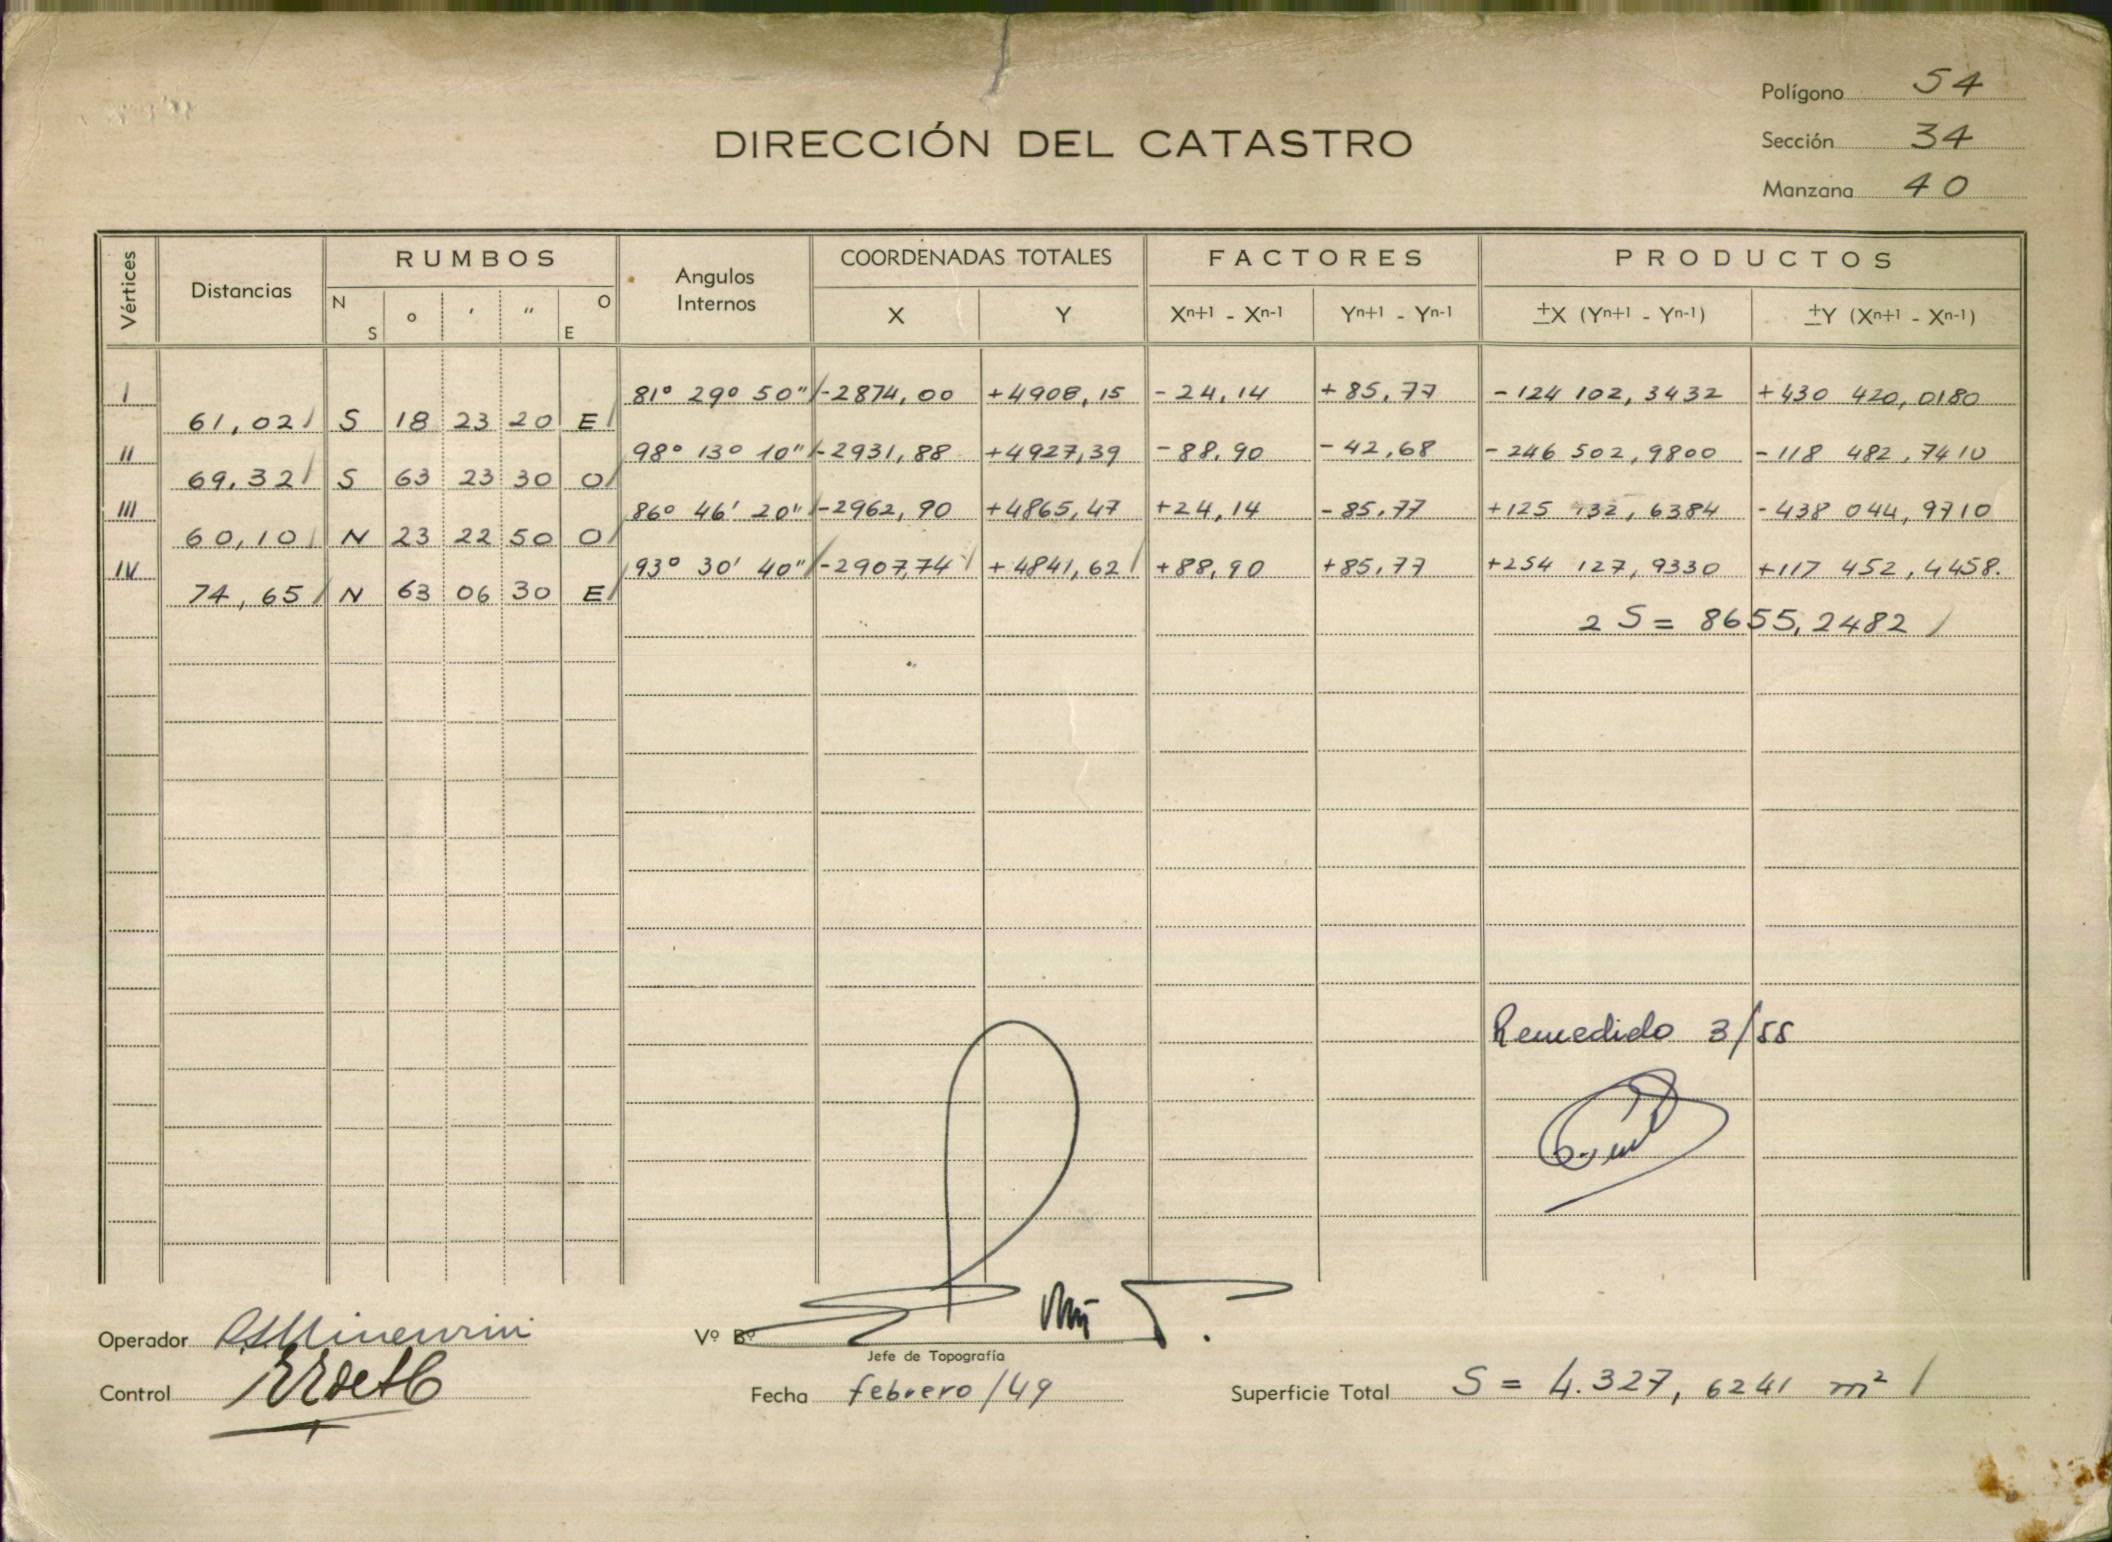 Polígono 54
DIRECCIÓN DEL CATASTRO
Sección 34
Manzana 40
Vértices Distancias RUMBOS Angulos Internos COORDENADAS TOTALES FACTORES PRODUCTOS
N S o ′ ″ O E X Y Xn+1 - Xn-1 Yn+1 - Yn-1 ±X (Yn+1 - Yn-1) ±Y (Xn+1 - Xn-1)
I 81° 29° 50" -2874,00 +4908,15 -24,14 +85,77 -124 102,3432 +430 420,0180
61,02 S 18 23 20 E
II 98° 13° 10" -2931,88 +4927,39 -88,90 -42,68 -246 502,9800 -118 482,7410
69,32 S 63 23 30 O
III 86° 46' 20" -2962,90 +4865,47 +24,14 -85,77 +125 132,6384 -438 044,9710
60,10 N 23 22 50 O
IV 93° 30' 40" -2907,74 +4841,62 +88,90 +85,77 +254 127,9330 +117 452,4458.
74,65 N 63 06 30 E
2 S = 8655,2482
Remedido 3/55
Operador
Vº Bº
Jefe de Topografía
Control
Fecha febrero/49
Superficie Total S = 4.327,6241 m²